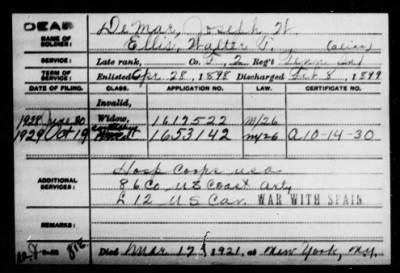 DEAD
NAME OF SOLDIER: De Mar, Joseph W.
Ellis, Walter T. (alias)
SERVICE: Late rank, Co. F, 2 Reg't Tenn Inf
TERM OF SERVICE: Enlisted Apr 28, 1898 Discharged Feb 8, 1899
DATE OF FILING. CLASS. APPLICATION NO. LAW. CERTIFICATE NO.
Invalid,
1928 30 Widow, 1619522 m/26
1929 Oct 19 1653142 m/26 A 10-14-30
ADDITIONAL SERVICES: Hosp Corps USA
86 Co US Coast Arty
L 12 US Cav. WAR WITH SPAIN
REMARKS:
Died Mar 17, 1921, at New York, N.Y.